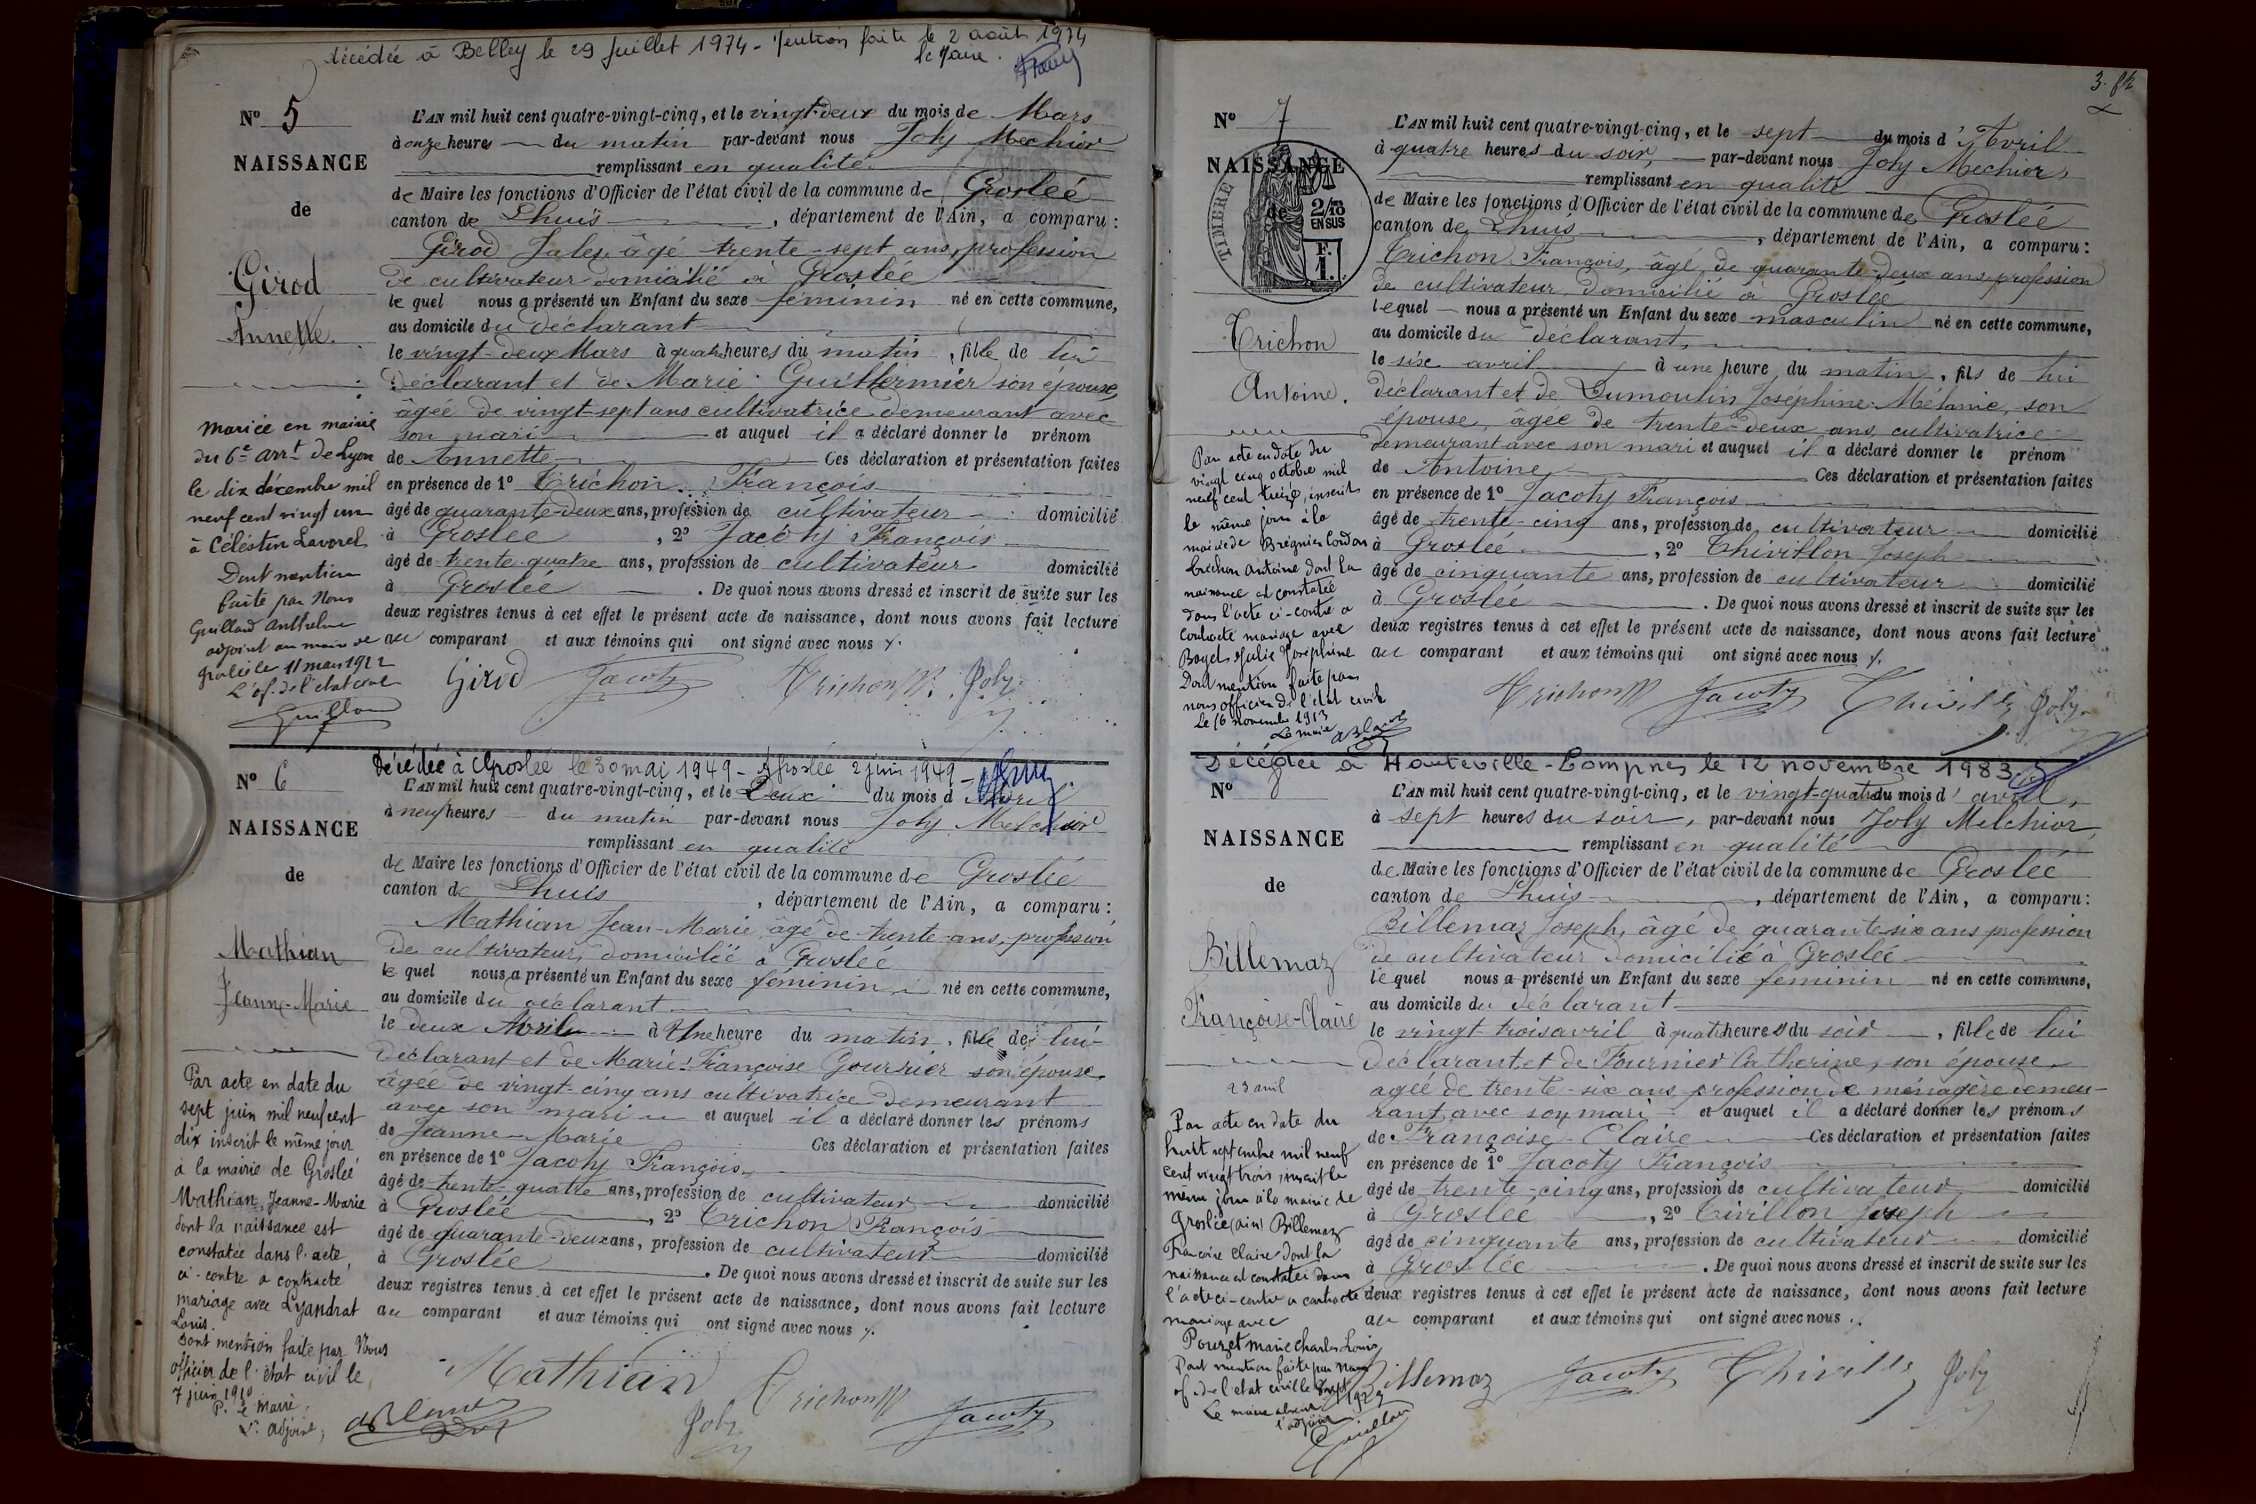 décédée à Belley le 29 Juillet 1974 - Mention faite le 2 août 1974
le Maire.
Nº 5
NAISSANCE
de
Girod
Annette.
L'AN mil huit cent quatre-vingt-cinq, et le vingt-deux du mois de Mars
à onze heures du matin par-devant nous Joly Mechior
remplissant en qualité
de Maire les fonctions d'Officier de l'état civil de la commune de Groslée
canton de Lhuis, département de l'Ain, a comparu :
Girod Jules, âgé trente-sept ans, profession
de cultivateur domicilié à Groslée
le quel nous a présenté un Enfant du sexe féminin né en cette commune,
au domicile du déclarant
le vingt-deux Mars à quatre heures du matin, fille de lui
déclarant et de Marie Guillermier son épouse
âgée de vingt-sept ans cultivatrice demeurant avec
son mari et auquel il a déclaré donner le prénom
de Annette Ces déclaration et présentation faites
en présence de 1º Trichon François
âgé de quarante-deux ans, profession de cultivateur domicilié
à Groslée, 2º Jacoty François
âgé de trente-quatre ans, profession de cultivateur domicilié
à Groslée. De quoi nous avons dressé et inscrit de suite sur les
deux registres tenus à cet effet le présent acte de naissance, dont nous avons fait lecture
au comparant et aux témoins qui ont signé avec nous
Girod Jacoty Trichon Joly
Mariée en mairie
du 6e arrt de Lyon
le dix décembre mil
neuf cent vingt un
à Célestin Lavorel
Dont mention
faite par Nous
Guilland Anthelme
adjoint au maire de
Groslée le 11 mars 1922
L'of. de l'état civil
Guilland
Décédée à Groslée le 30 mai 1949 - Groslée 2 juin 1949 -
Nº 6
NAISSANCE
de
Mathian
Jeanne-Marie
L'AN mil huit cent quatre-vingt-cinq, et le Deux du mois d'Avril
à neuf heures du matin par-devant nous Joly Melchior
remplissant en qualité
de Maire les fonctions d'Officier de l'état civil de la commune de Groslée
canton de Lhuis, département de l'Ain, a comparu :
Mathian Jean-Marie, âgé de trente ans, profession
de cultivateur, domicilié à Groslée
le quel nous a présenté un Enfant du sexe féminin né en cette commune,
au domicile du déclarant
le deux Avril à Une heure du matin, fille de lui
déclarant et de Marie-Françoise Gourrier son épouse
âgée de vingt-cinq ans cultivatrice demeurant
avec son mari et auquel il a déclaré donner les prénoms
de Jeanne-Marie Ces déclaration et présentation faites
en présence de 1º Jacoty François
âgé de trente-quatre ans, profession de cultivateur domicilié
à Groslée, 2º Trichon François
âgé de quarante-deux ans, profession de cultivateur domicilié
à Groslée. De quoi nous avons dressé et inscrit de suite sur les
deux registres tenus à cet effet le présent acte de naissance, dont nous avons fait lecture
au comparant et aux témoins qui ont signé avec nous
Mathian Trichon
Joly Jacoty
Par acte en date du
sept juin mil neuf cent
dix inscrit le même jour
à la mairie de Groslée
Mathian Jeanne-Marie
dont la naissance est
constatée dans l'acte
ci-contre a contracté
mariage avec Lyandrat
Louis.
Dont mention faite par Nous
officier de l'état civil le
7 juin 1910
P. le maire,
L'adjoint,
3.
Nº 7
NAISSANCE
de
TIMBRE
2/10
EN SUS
F.
1.
Trichon
Antoine.
L'AN mil huit cent quatre-vingt-cinq, et le sept du mois d'Avril
à quatre heures du soir, par-devant nous Joly Mechior,
remplissant en qualité
de Maire les fonctions d'Officier de l'état civil de la commune de Groslée
canton de Lhuis, département de l'Ain, a comparu :
Trichon François, âgé de quarante-deux ans, profession
de cultivateur domicilié à Groslée
lequel nous a présenté un Enfant du sexe masculin né en cette commune,
au domicile du déclarant,
le six avril à une heure du matin, fils de lui
déclarant et de Dumoulin Joséphine-Mélanie, son
épouse, âgée de trente-deux ans, cultivatrice
demeurant avec son mari et auquel il a déclaré donner le prénom
de Antoine Ces déclaration et présentation faites
en présence de 1º Jacoty François
âgé de trente-cinq ans, profession de cultivateur domicilié
à Groslée, 2º Thivillon Joseph
âgé de cinquante ans, profession de cultivateur domicilié
à Groslée. De quoi nous avons dressé et inscrit de suite sur les
deux registres tenus à cet effet le présent acte de naissance, dont nous avons fait lecture
au comparant et aux témoins qui ont signé avec nous
Trichon Jacoty Thivill Joly
Par acte en date du
vingt cinq octobre mil
neuf cent treize, inscrit
le même jour à la
mairie de Brégnier Cordon
Trichon Antoine dont la
naissance est constatée
dans l'acte ci-contre a
contracté mariage avec
Joséphine
Dont mention faite par
nous officier de l'état civil
Le 16 novembre 1913
Le maire
Décédée à Hauteville-Lompnes le 12 novembre 1983
Nº 8
NAISSANCE
de
Billemaz
Françoise-Claire
23 avril
L'AN mil huit cent quatre-vingt-cinq, et le vingt-quatre du mois d'avril,
à sept heures du soir, par-devant nous Joly Melchior,
remplissant en qualité
de Maire les fonctions d'Officier de l'état civil de la commune de Groslée
canton de Lhuis, département de l'Ain, a comparu :
Billemaz Joseph, âgé de quarante-six ans profession
de cultivateur domicilié à Groslée
le quel nous a présenté un Enfant du sexe féminin né en cette commune,
au domicile du déclarant
le vingt-trois avril à quatre heures du soir, fille de lui
déclarant, et de Fournier Catherine, son épouse
agée de trente-six ans, profession de ménagère demeu-
rant avec son mari et auquel il a déclaré donner les prénoms
de Françoise-Claire Ces déclaration et présentation faites
en présence de 1º Jacoty François
âgé de trente-cinq ans, profession de cultivateur domicilié
à Groslée, 2º Tivillon Joseph
âgé de cinquante ans, profession de cultivateur domicilié
à Groslée. De quoi nous avons dressé et inscrit de suite sur les
deux registres tenus à cet effet le présent acte de naissance, dont nous avons fait lecture
au comparant et aux témoins qui ont signé avec nous
Billemaz Jacoty Thivill Joly
Par acte en date du
huit septembre mil neuf
cent vingt trois inscrit le
même jour à la mairie de
Groslée (Ain) Billemaz
Françoise Claire dont la
naissance est constatée dans
l'acte ci-contre a contracté
mariage avec
Pouzet Marie Charles Louis
Dont mention faite par nous
of. de l'état civil le 8 sept 1923
Le maire absent
l'adjoint
Guilland